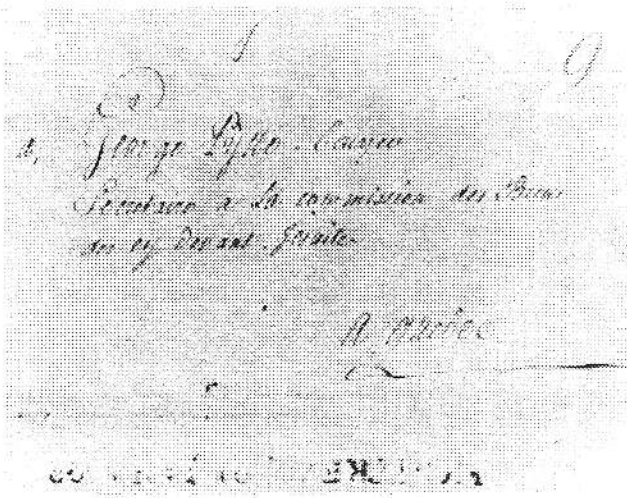 9
A, George Pyke Ecuyer
Secretaire a La commission des Biens
des cy devant Jesuites
A Quebec